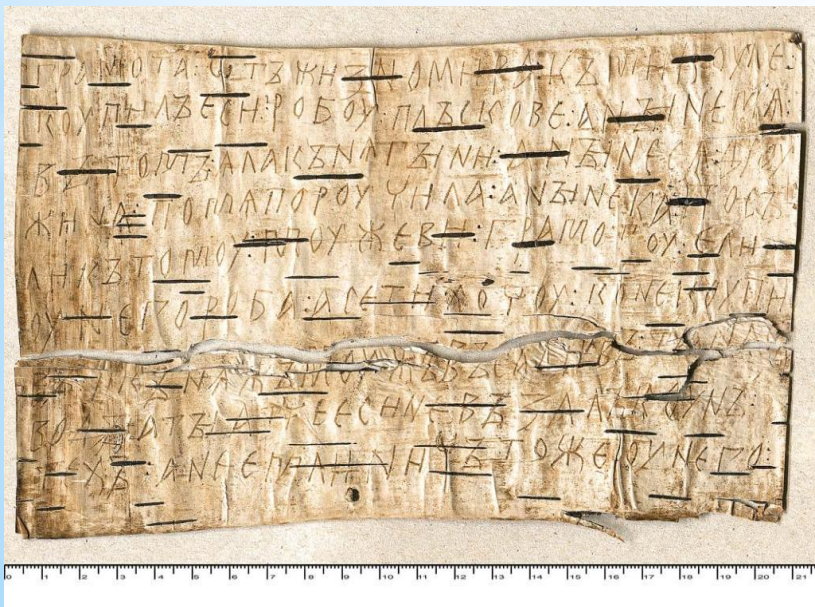 грамота : ѡтъ жизномира : къ микоуле :
коупилъ еси : робоу : плъскове : а нъине мѧ :
въ томъ : ѧла кънѧгъини : а нъине сѧ дроу
жина : по мѧ пороучила : а нъине ка : посъ
ли къ томоу : моужеви : грамотоу : е ли
оу него роба : а се ти хочоу : коне коупи
въ : и кънѧжъ моужъ въсадивъ : та на съ
водъ : а тъ атче еси не възалъ коунъ :
техъ : а не емли : ничъто же оу него :
0 1 2 3 4 5 6 7 8 9 10 11 12 13 14 15 16 17 18 19 20 21